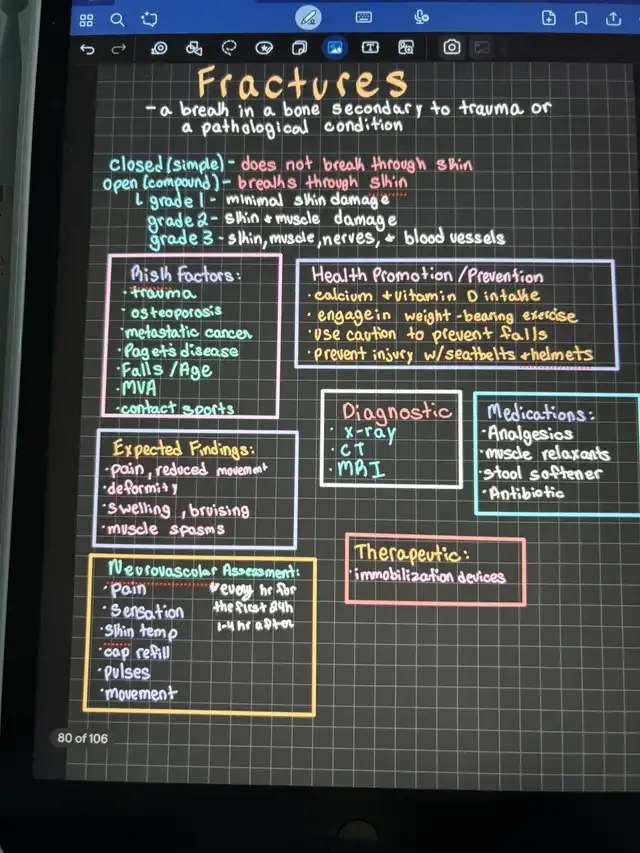 Fractures
- a break in a bone secondary to trauma or
a pathological condition
closed (simple) - does not break through skin
open (compound) - breaks through skin
↳ grade 1 - minimal skin damage
grade 2 - skin + muscle damage
grade 3 - skin, muscle, nerves, + blood vessels
Risk Factors:
· trauma
· osteoporosis
· metastatic cancer
· Pagets disease
· Falls / Age
· MVA
· contact sports
Health Promotion / Prevention
· calcium + vitamin D intake
· engage in weight-bearing exercise
· use caution to prevent falls
· prevent injury w/ seatbelts + helmets
Diagnostic
· x-ray
· CT
· MRI
Medications:
· Analgesics
· muscle relaxants
· stool softener
· Antibiotic
Expected Findings:
· pain, reduced movement
· deformity
· swelling, bruising
· muscle spasms
Therapeutic:
· immobilization devices
Neurovascular Assessment:
· pain
· sensation
· skin temp
· cap refill
· pulses
· movement
* every hr for
the first 24h
1-4 hr after
80 of 106